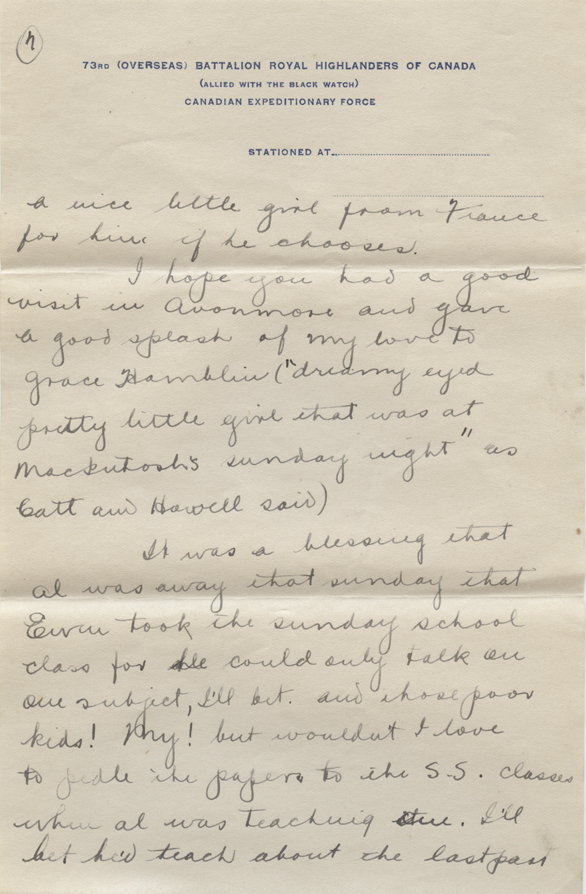 7
73RD (OVERSEAS) BATTALION ROYAL HIGHLANDERS OF CANADA
(ALLIED WITH THE BLACK WATCH)
CANADIAN EXPEDITIONARY FORCE
STATIONED AT
a nice little girl from France
for him if he chooses.
I hope you had a good
visit in Avonmore and gave
a good splash of my love to
Grace Hamblin ("dreamy eyed
pretty little girl that was at
Mackintosh's sunday night" as
Catt and Howell said)
It was a blessing that
al was away that sunday that
took the sunday school
class for he could only talk on
one subject, I'll bet. and those poor
kids! My! but wouldnt I love
to pedle the papers to the S.S. classes
when al was teaching. I'll
bet he'd teach about the last part